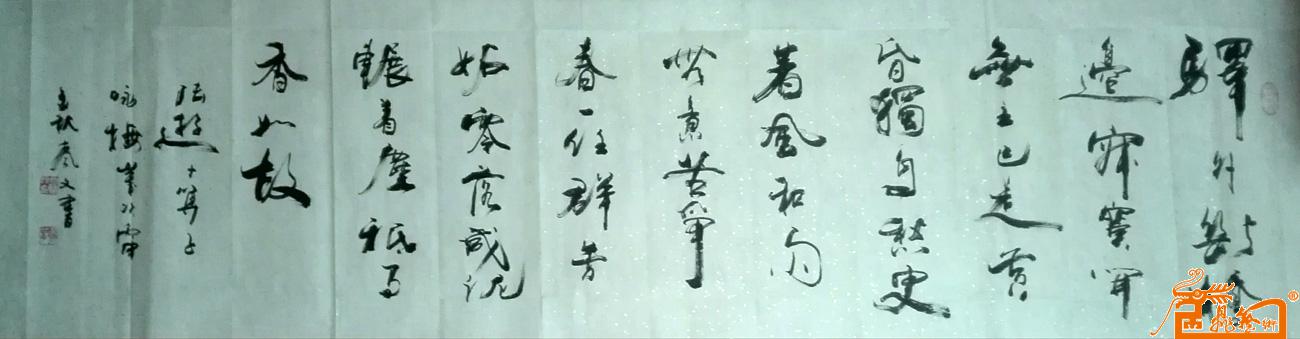 驛外斷橋
邊寂寞開
無主已是黃
昏獨自愁更
著風和雨
無意苦爭
春一任群芳
妒零落成泥
輾着塵祗有
香如故
陸游卜算子
詠梅
文書